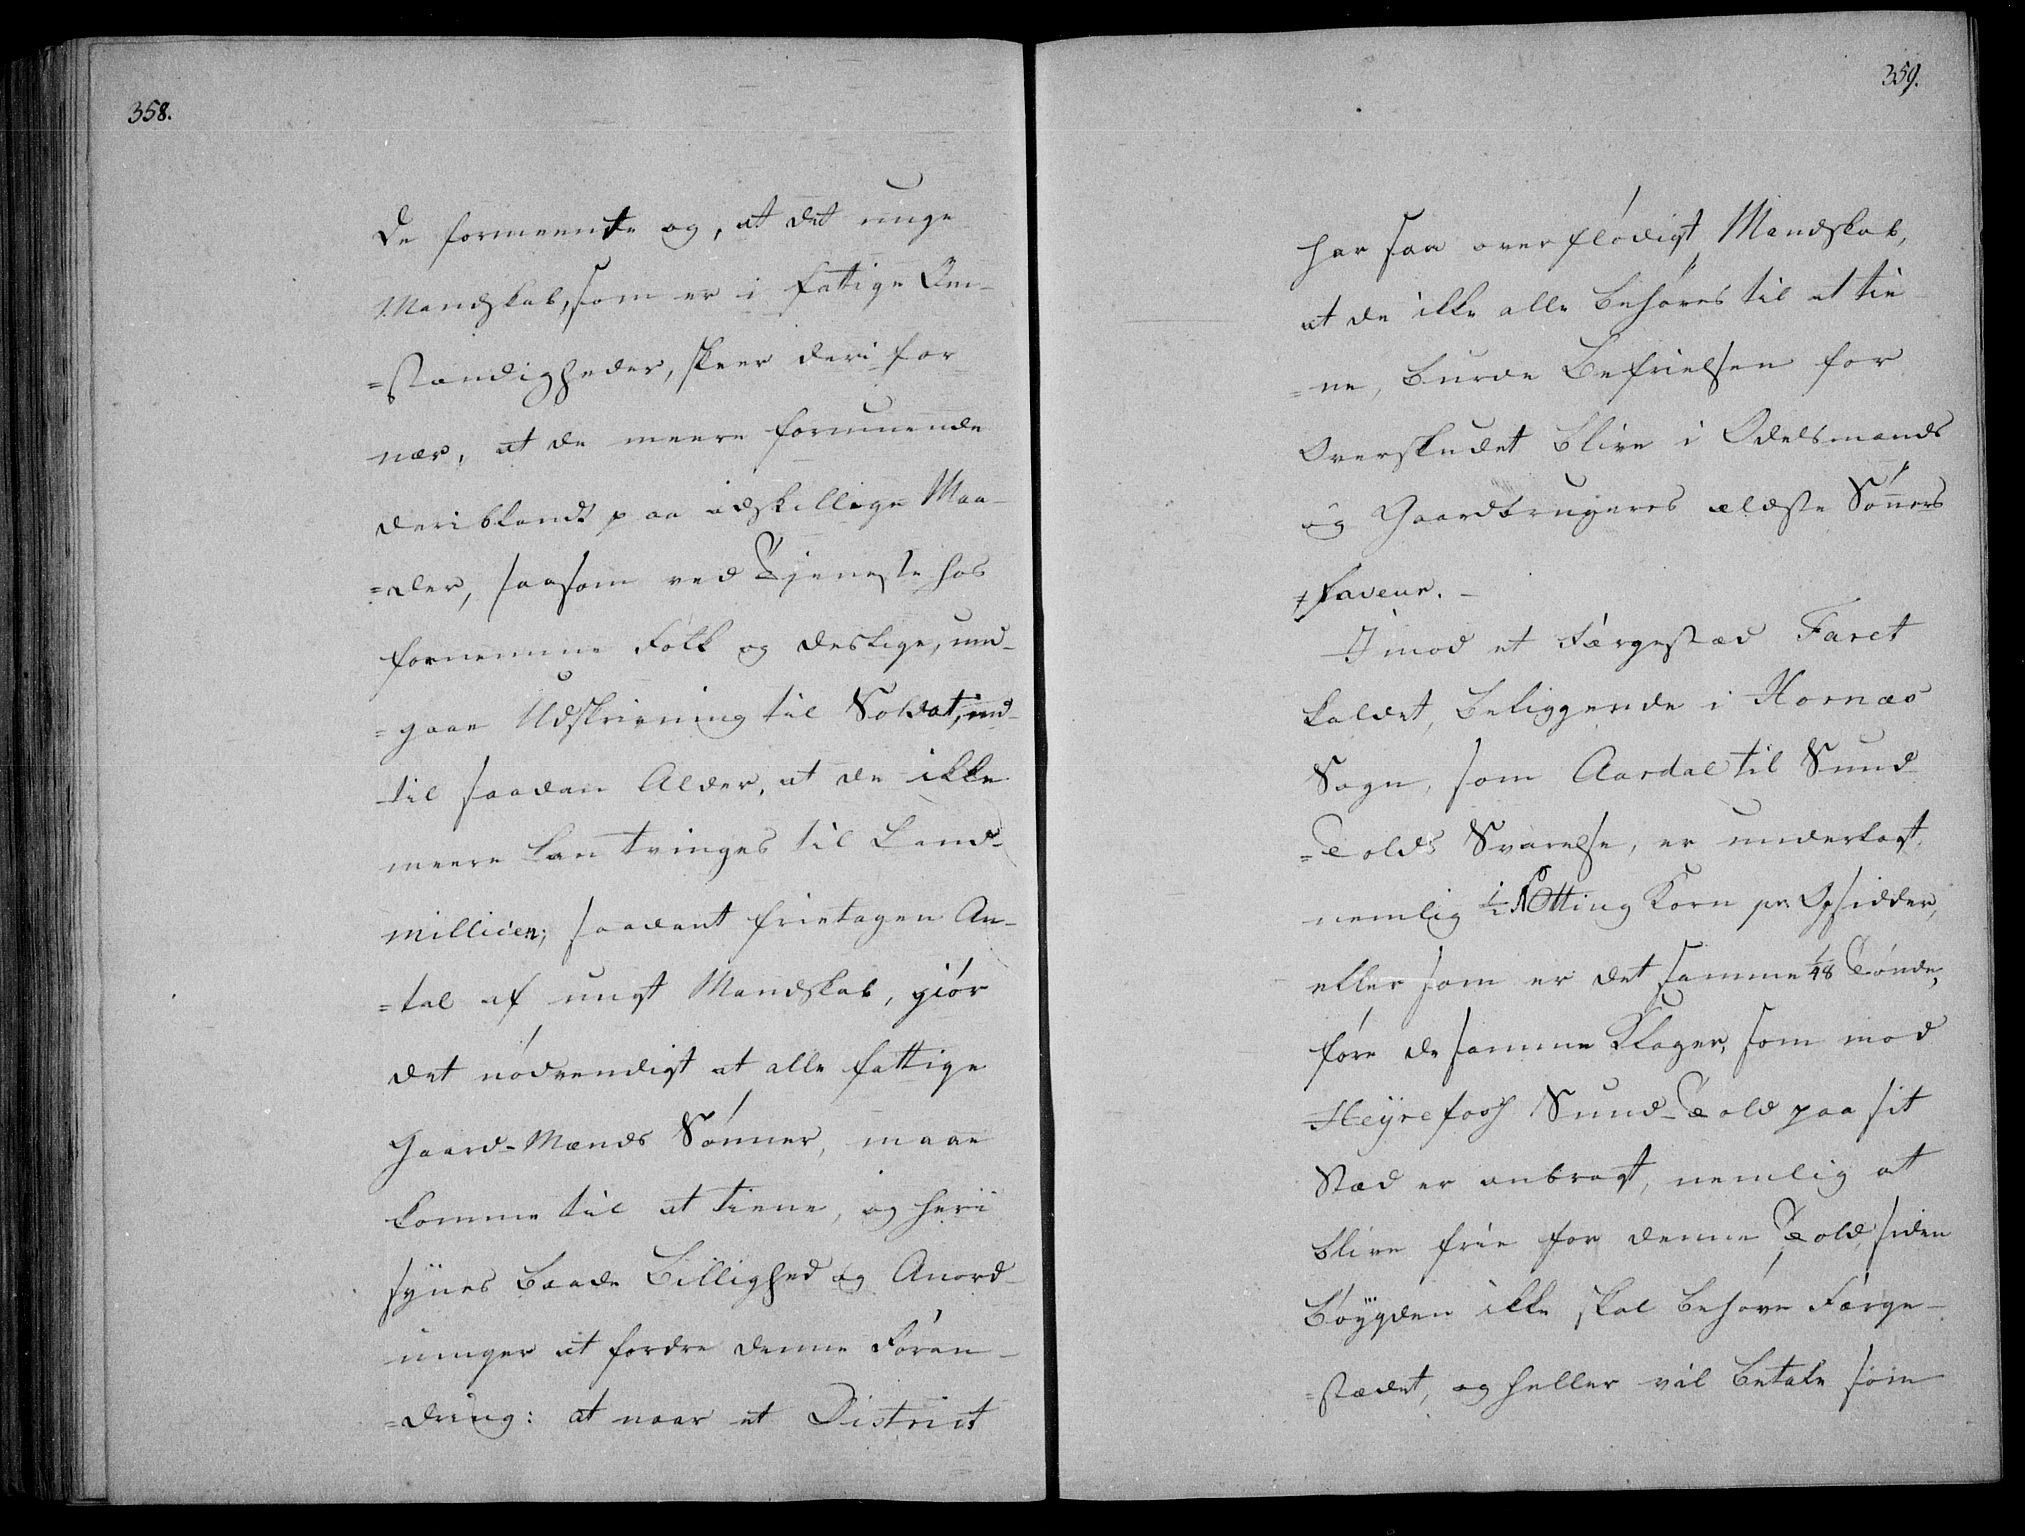 358.
De formeente og, at det unge
Mandskab, som er i fattige Om-
=stændigheder, skeer deri for
nær, at de meere formuende
deriblandt paa adskillige Maa-
=der, saasom ved Tjeneste hos
fornemme Folk og deslige, und-
=gaae Udskrivning til Soldat, ind-
til saadan Alder, at de ikke
meere kan tvinges til Land-
millicen; saadant frietagen An-
=tal af ungt Mandskab, giør
det nødvendigt at alle fattige
Gaard-Mænds Sønner, maae
komme til at tiene, og heri
synes baade Billighed og Anord-
ninger at fordre denne Foran-
=dring: at naar et District
359.
har saa overflødigt Mandskab,
at de ikke alle behøves til at tie
=ne, burde Befrielsen for
Overskudet blive i Odelsmands
og Gaardbrugeres ældste Sønners
Faveur. -
Imod et Færgestæd Faret
kaldet, beliggende i Hornæs
Sogn, som Aardal til Sund
=Tolds Svarelse, er underlagt,
nemlig 1/2 Otting Korn pr. Opsidder,
eller som er det samme 1/48 Tønde,
føre de samme Klager, som mod
Heyrefoss Sund-Told paa sit
Stæd er anbragt, nemlig at
blive frie for denne Told, siden
Bøygden ikke skal behøve Færge-
=stædet, og heller vil betale som